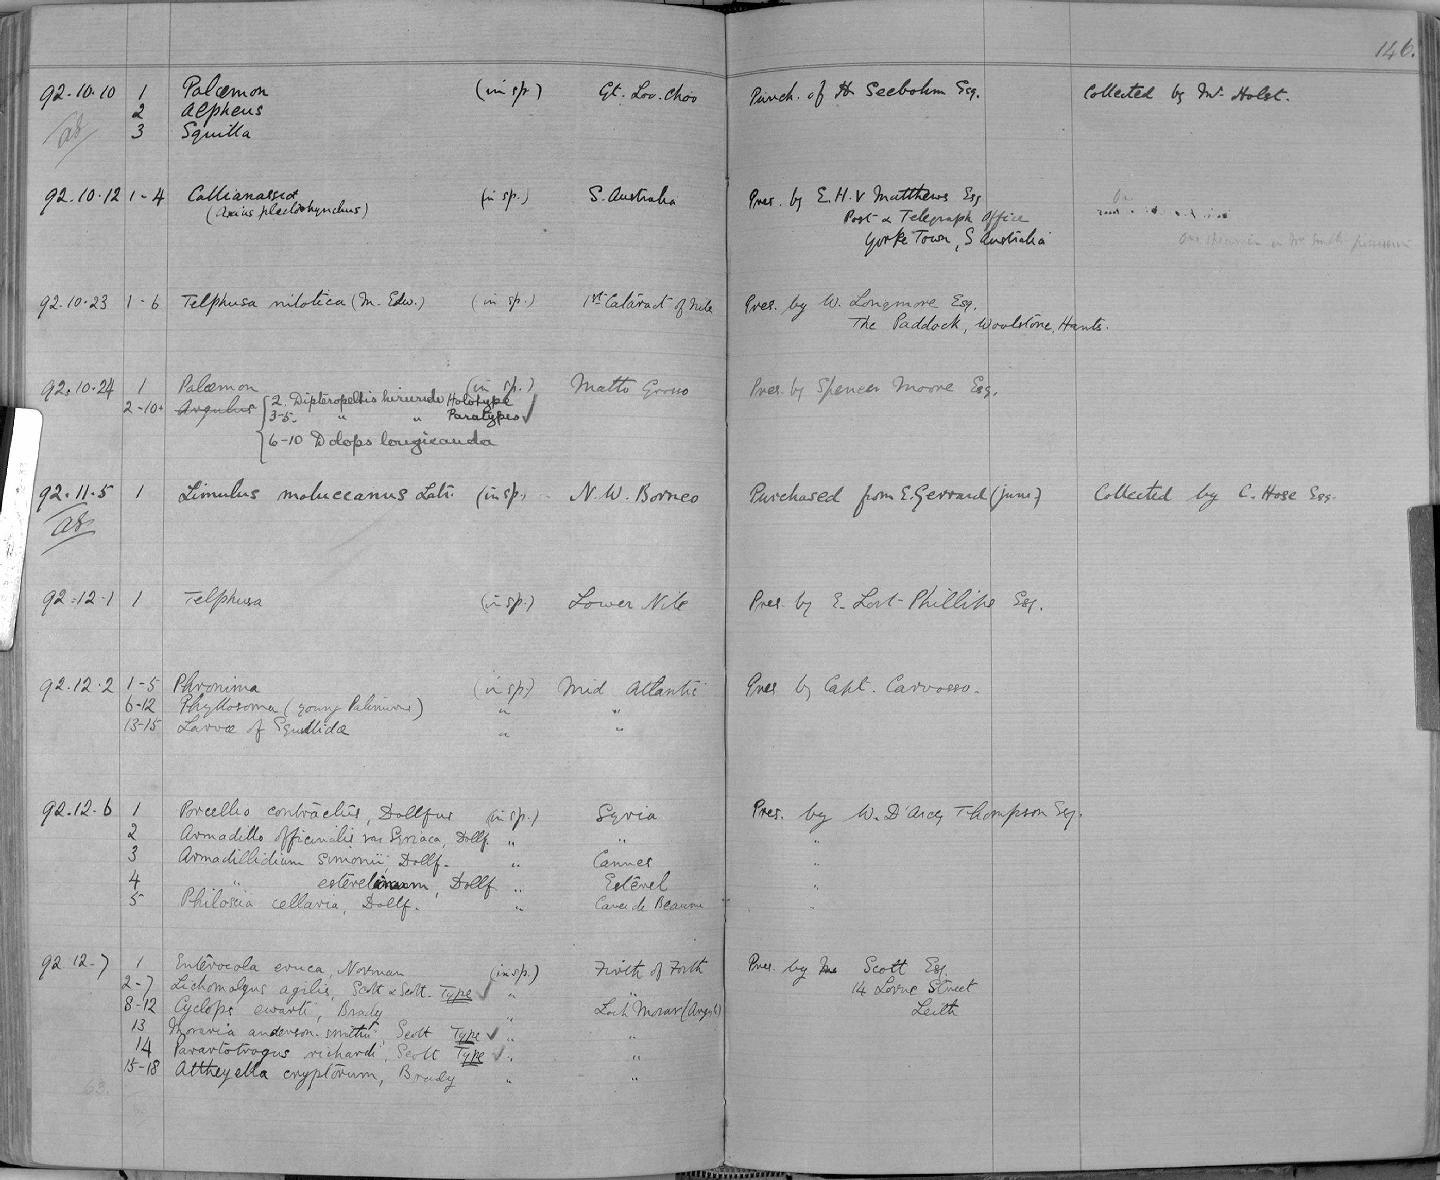 146.
92.10.10 1 Palæmon (in sp.) Gt. Loo-Choo Purch. of H. Seebohm Esq. Collected by Mr. Holst.
2 Alpheus
3 Squilla
92.10.12 1-4 Callianassa (in sp.) S. Australia Pres. by E.H.V Matthews Esq
(Axius plectorhynchus) Post & Telegraph Office
Yorke Town, S Australia
92.10.23 1-6 Telphusa nilotica (M. Edw.) (in sp.) 1st Cataract of Nile Pres. by W. Longmore Esq.
The Paddock, Woolstone, Hants.
92.10.24 1 Palæmon (in sp.) Matto Grosso Pres. by Spencer Moore Esq.
2-10 Argulus { 2. Dipteropeltis hirundo Holotype
3-5. " " Paratypes ✓
6-10 Dolops longicauda
92.11.5 1 Limulus moluccanus Latr. (in sp.) N.W. Borneo Purchased from E. Gerrard (June) Collected by C. Hose Esq.
92.12.1 1 Telphusa (in sp.) Lower Nile Pres. by E. Lort-Phillips Esq.
92.12.2 1-5 Phronima (in sp.) Mid Atlantic Pres by Capt. Carvosso.
6-12 Phyllosoma (young Palinurus) " "
13-15 Larvæ of Squillidæ " "
92.12.6 1 Porcellio contractus, Dollfus (in sp.) Syria Pres. by W. D'Arcy Thompson Esq.
2 Armadillo officinalis var Syriaca, Dollf. " " "
3 Armadillidium simonii, Dollf. " Cannes "
4 " esterelanum, Dollf. " Estérel "
5 Philoscia cellaria, Dollf. " Cave de Beaume "
92.12.7 1 Enterocola eruca, Norman (in sp.) Firth of Forth Pres. by Scott Esq.
2-7 Lichomolgus agilis, Scott & Scott. Type ✓ " " 14 Lorne Street
8-12 Cyclops ewarti, Brady " Loch Morar (Argyll) Leith
13 Moraria anderson-smithi, Scott Type ✓ " "
14 Parartotrogus richardi, Scott Type ✓ " "
15-18 Attheyella cryptorum, Brady " "
63.